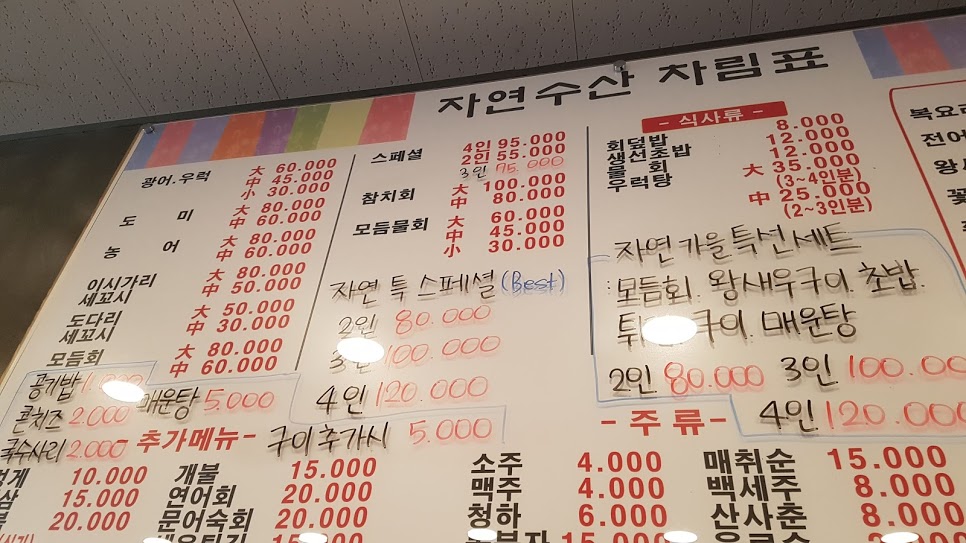 자연수산 차림표
광어.우럭 大 60.000
中 45.000
小 30.000
도 미 大 80.000
中 60.000
농 어 大 80.000
中 60.000
이시가리 세꼬시 大 80.000
中 50.000
도다리 세꼬시 大 50.000
中 30.000
모듬회 大 80.000
中 60.000
공기밥
매운탕 5,000
콘치즈 2.000
국수사리 2.000
스페셜 4인 95.000
2인 55.000
3인 75.000
참치회 大 100.000
中 80.000
모듬물회 大 60.000
中 45.000
小 30.000
자연 특 스페셜 (Best)
2인 80.000
3인 100.000
4인 120.000
구이추가시 5.000
- 식사류 -
회덮밥 8.000
생선초밥 12.000
물 회 12.000
우럭탕 大 35.000
(3~4인분)
中 25.000
(2~3인분)
자연 가을 특선 세트
모듬회. 왕새우구이. 초밥.
구이. 매운탕
2인 80.000 3인 100.00
4인 120.000
복요리
전어
왕새
꽃
추가메뉴 -
10.000
15.000
20.000
개불 15.000
연어회 20.000
문어숙회 20.000
- 주 류 -
소주 4.000
맥주 4.000
청하 6.000
15.000
매취순 15.000
백세주 8.000
산사춘 8.000